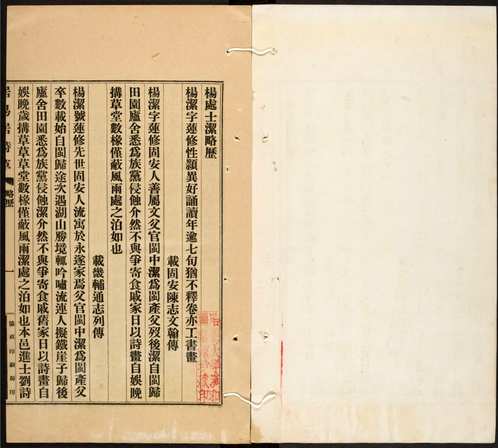 楊處士潔略歷
楊潔字蓮修性穎異好誦讀年逾七旬猶不釋卷亦工書畫
載固安陳志文翰傳
楊潔字蓮修固安人善屬文父官閩中潔爲閩產父歿後潔自閩歸
田園廬舍悉爲族黨侵蝕介然不與爭寄食戚家日以詩畫自娛晚
搆草堂數椽僅蔽風雨處之泊如也
載畿輔通志列傳
楊潔號蓮修先世固安人流寓於永遂家焉父官閩中潔爲閩產父
卒數載始自閩歸途次遇湖山勝境輒吟嘯流連人擬鐵崖子歸後
廬舍田園悉爲族黨侵蝕潔介然不與爭寄食戚舊家日以詩畫自
娛晚歲搆草草堂數椽僅蔽風雨潔處之泊如也本邑進士劉詩
略歷
一